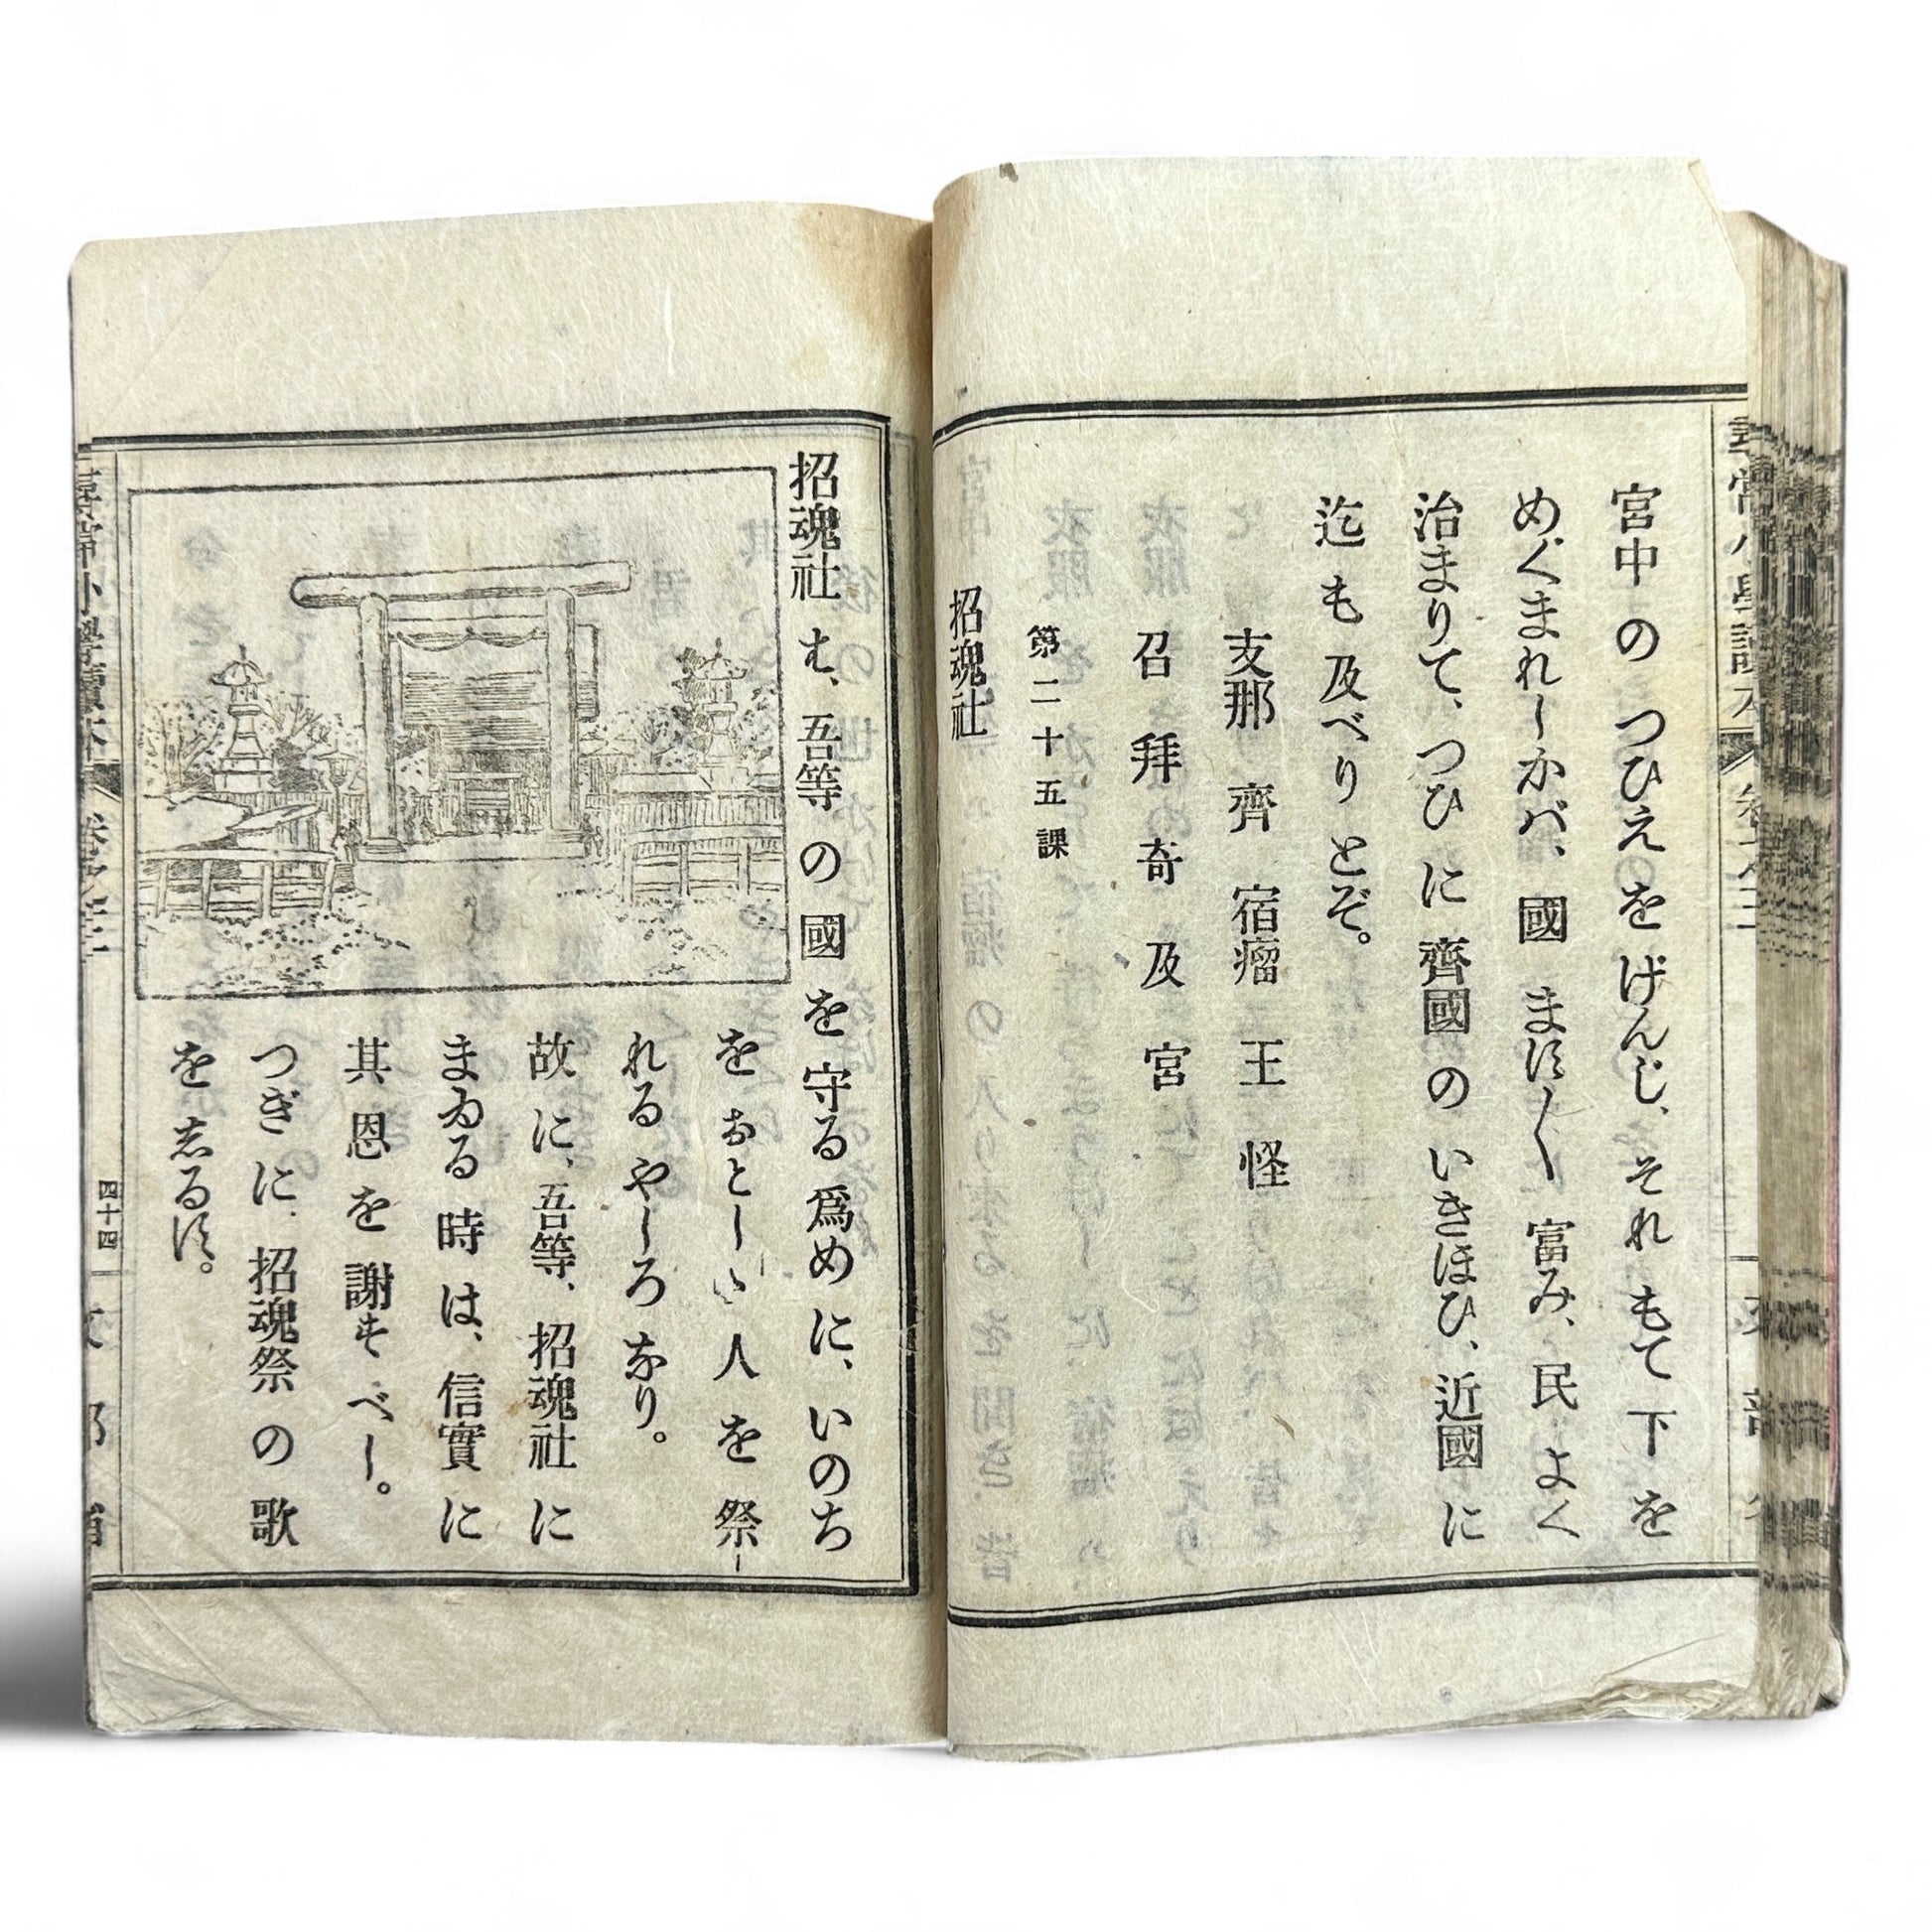 宮中の つひえを げんじ、それ もて 下を
めぐまれしかバ、國 ますます 富み、民 よく
治まりて、つひに 齊國の いきほひ、近國に
迄も 及べり とぞ。
支那 齊 宿瘤 王 怪
召 拜 奇 及 宮
第二十五課
招魂社
招魂社は、吾等の 國を 守る 爲めに、いのち
を おとしゝ 人を 祭し
れる やしろ なり。
故に、吾等、招魂社に
まゐる 時は、信實に
其恩を 謝すべし。
つぎに、招魂祭の 歌
を しるす。
尋常小學讀本
卷之三
四十四
文部省